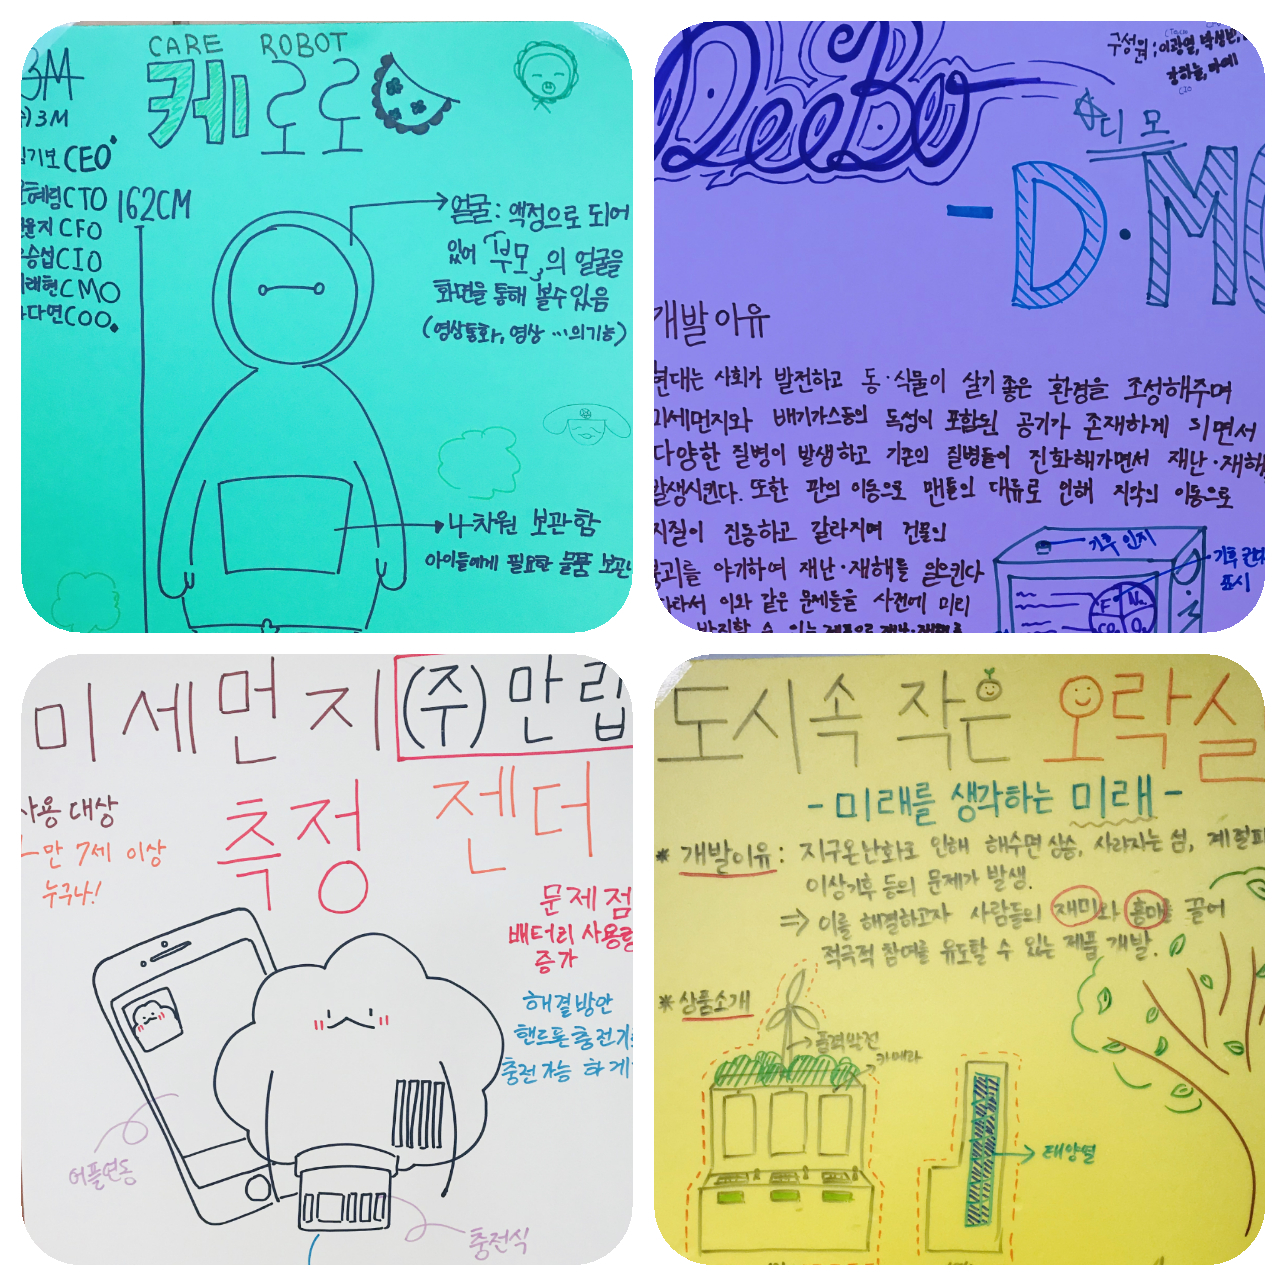 CARE ROBOT
3M
케로로
3M
CEO
CTO
CFO
CIO
CMO
COO
162CM
얼굴: 액정으로 되어
있어 "부모"의 얼굴을
화면을 통해 볼수있음
(영상통화, 영상 …의기능)
나차원 보관함
아이들에게 필요한 물품 보관
DeeBo
구성원 : 이광열,
CIO
디 모
- D·MO
개발이유
현대는 사회가 발전하고 동·식물이 살기 좋은 환경을 조성해주며
미세먼지와 배기가스등의 독성이 포함된 공기가 존재하게 되면서
다양한 질병이 발생하고 기존의 질병들이 진화해가면서 재난·재해
발생시킨다. 또한 판의 이동으로 맨틀의 대류로 인해 지각의 이동으로
지질이 진동하고 갈라지며 건물의
붕괴를 야기하여 재난·재해를 일으킨다
따라서 이와 같은 문제들을 사전에 미리
기후 인지
표시
미세먼지
(주)만립
측정
젠더
사용 대상
만 7세 이상
누구나!
문제점
배터리 사용량
증가
해결방안
핸드폰충전기로
충전가능 하게
어플연동
충전식
도시속 작은 오락실
- 미래를 생각하는 미래 -
* 개발이유 : 지구온난화로 인해 해수면 상승, 사라지는 섬, 계절파
이상기후 등의 문제가 발생.
⇒ 이를 해결하고자 사람들의 재미와 흥미를 끌어
적극적 참여를 유도할 수 있는 제품 개발.
* 상품소개
풍력발전
카메라
태양열